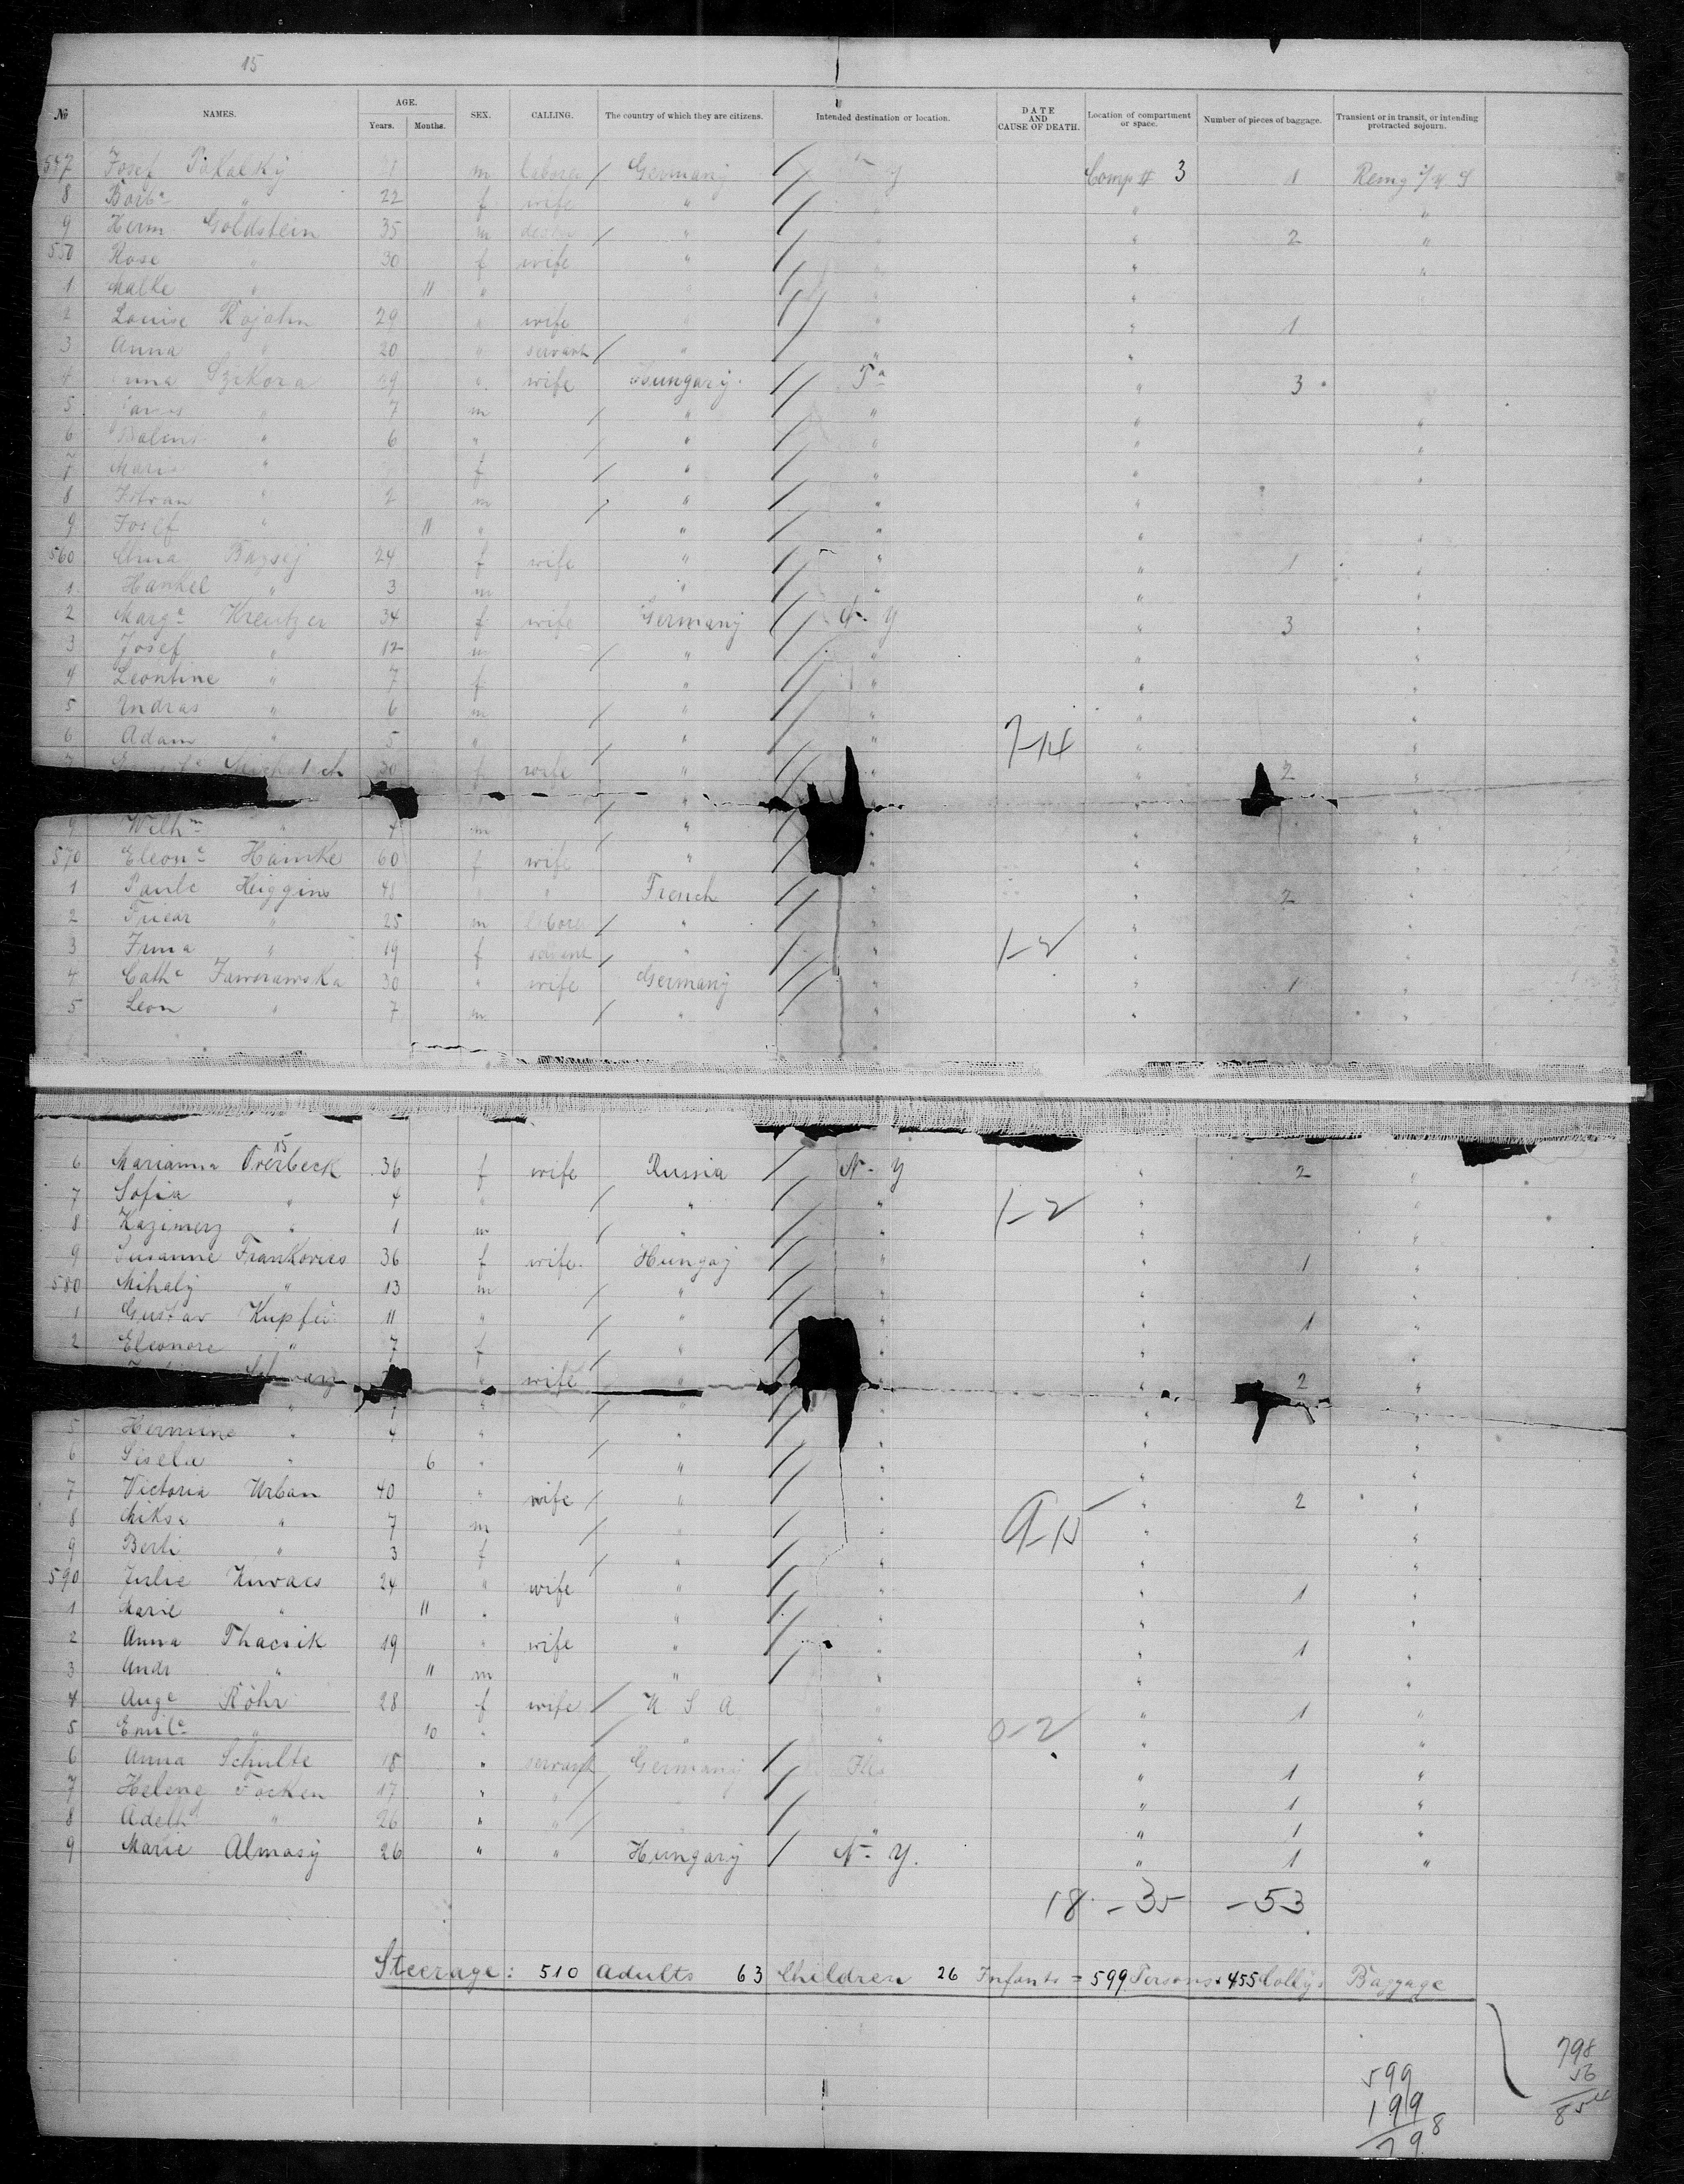 15
№ NAMES. AGE. Years. Months. SEX. CALLING. The country of which they are citizens. Intended destination or location. DATE AND CAUSE OF DEATH. Location of compartment or space. Number of pieces of baggage. Transient or in transit, or intending protracted sojourn.
547 Josef m laborer / Germany / Y Comp II 3 1
8 Barbᵃ " 22 f wife " / " " "
9 Herm Goldstein 35 m / " / " " 2 "
550 Rose " 30 f wife " / " " "
1 Malke " 11 " " / " " "
2 Louise Rojahn 29 " wife " / / " " 1
3 Anna " 20 " servant / " " "
4 Szekora 29 " wife Hungary / / Pᵃ " 3
5 " 7 m / " / " " "
6 " 6 " / " / " " "
7 Mari " f / " / " " "
8 Istvan " 2 m / " / " " "
9 Josef " 11 " " / " " "
560 24 f wife " / " " 1 "
1 Hankel " 3 m " / " " "
2 Margᵉ Kreutzer 34 f wife Germany / / N-Y " 3 "
3 Josef " 12 m / " / " " "
4 Leontine " 7 f " / / " " "
5 Andras " 6 m / " / " " "
6 Adam " 5 " / " / " 7-14 " "
7 30 f wife " / / " " 2 "
/ " / " "
9 Wilhᵐ " 4 m " / " " "
570 Eleonᵉ Hamke 60 f wife " / " " "
1 Paule Heiggins 48 " " French / / " " 2 "
2 " 25 m laborer / " / " " "
3 Irma " 19 f servant / " / " 1-2 " "
4 Cathᵉ Jaworawska 30 " wife Germany / / " " 1 "
5 Leon " 7 m / " / " " "
15
6 Marianna Overbeck 36 f wife Russia / N-Y " 2 "
7 Sofia " 4 " / " / " 1-2 " "
8 Kazimerz " 1 m / " / " " "
9 Susanne Frankovics 36 f wife. Hungay / " " 1 "
580 Mihaly " 13 m / " / " " "
1 Gustav Kupfer 11 " / " / " " 1 "
2 Eleonore " 7 f / " / " " "
Schwarz " wife " / " " 2 "
" 7 " / " / " " "
5 Hermine " 4 " " / " " "
6 Gisela " 6 " / " / " " "
7 Victoria Urban 40 " wife / " / " " 2 "
8 Miksa " 7 m / " / " 9-15 " "
9 Berti " 3 f / " / " " "
590 Julie Kuvacs 24 " wife " / " " 1 "
1 Marie " 11 " " / " " "
2 Anna Thacsik 19 " wife " / " " 1 "
3 Andr " 11 m " / " " "
4 Augᵉ Röhr 28 f wife / U S A " " 1 "
5 Emilᵉ " 10 " / " " 0-2 " "
6 Anna Schulte 18 " servant Germany / Ills " 1 "
7 Helene Focken 17 " " / " / " 1 "
8 Adelhᵈ " 26 " " / " / " " 1 "
9 Marie Almasy 26 " " Hungary / N-Y. " 1 "
18 - 35 - 53
Steerage: 510 Adults 63 Children 26 Infants = 599 Persons + 455 Collys Baggage
599
199
798
798
56
854